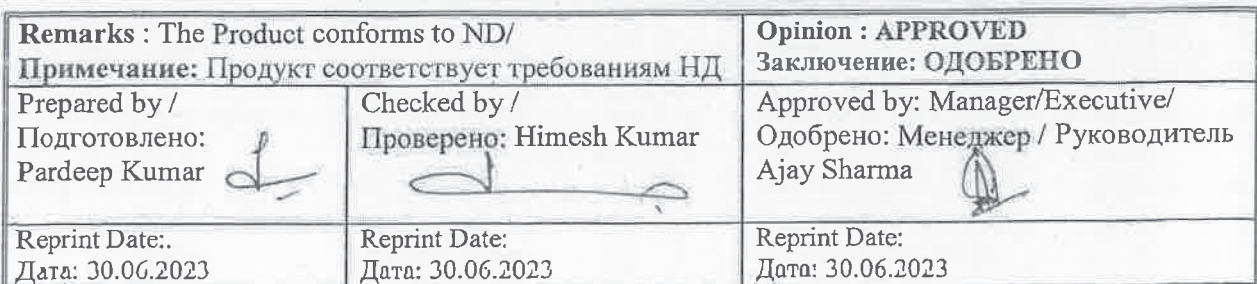 Remarks : The Product conforms to ND/
Примечание: Продукт соответствует требованиям НД
Opinion : APPROVED
Заключение: ОДОБРЕНО
Prepared by /
Подготовлено:
Pardeep Kumar
Checked by /
Проверено: Himesh Kumar
Approved by: Manager/Executive/
Одобрено: Менеджер / Руководитель
Ajay Sharma
Reprint Date:.
Дата: 30.06.2023
Reprint Date:
Дата: 30.06.2023
Reprint Date:
Дата: 30.06.2023